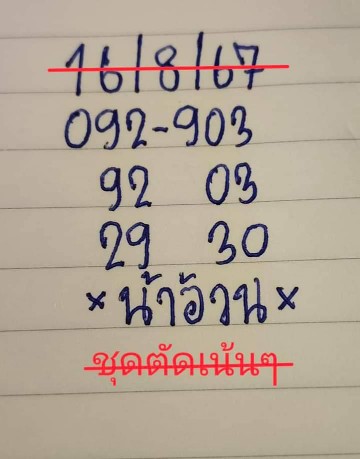 16/8/67
092-903
92 03
29 30
× น้าอ้วน ×
ชุดตัดเน้นๆ